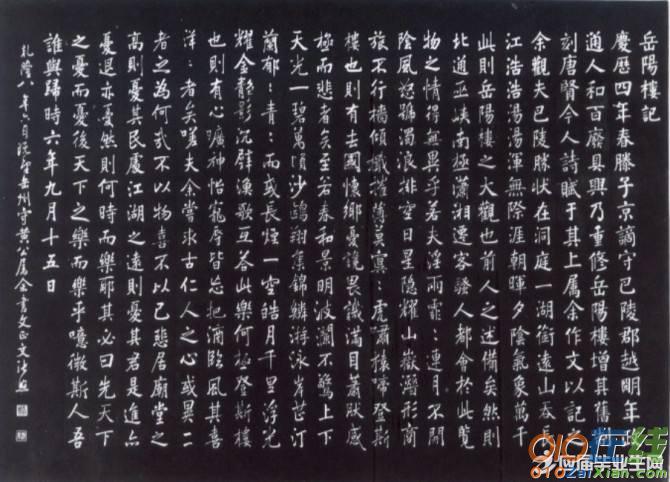 岳陽樓記
慶歷四年春滕子京謫守巴陵郡越明年政
通人和百廢具興乃重修岳陽樓增其舊制
刻唐賢今人詩賦于其上屬余作文以記之
余觀夫巴陵勝狀在洞庭一湖銜遠山吞長
江浩浩湯湯渾無際涯朝暉夕陰氣象萬千
此則岳陽樓之大觀也前人之述備矣然則
北通巫峽南極瀟湘遷客騷人都會於此覽
物之情得無異乎若夫淫雨霏:連月不開
陰風怒號濁浪排空日星隱耀山嶽潛形商
旅不行檣傾檝摧薄暮冥:虎嘯猿啼登斯
樓也則有去國懷鄉憂讒畏譏滿目蕭然感
極而悲者矣至若春和景明波瀾不驚上下
天光一碧萬頃沙鷗翔集錦鱗游泳岸芷汀
蘭郁:青:而或長煙一空皓月千里浮光
耀金靜影沉璧漁歌互答此樂何極登斯樓
也則有心曠神怡寵辱皆忘把酒臨風其喜
洋:者矣嗟夫余嘗求古仁人之心或異二
者之為何哉不以物喜不以己悲居廟堂之
高則憂其民處江湖之遠則憂其君是進亦
憂退亦憂然則何時而樂耶其必曰先天下
之憂而憂後天下之樂而樂乎噫微斯人吾
誰與歸時六年九月十五日
乾隆八年六月岳州守黃公屬余書文正文張照
010在线
应届毕业生网
010zaixian.com